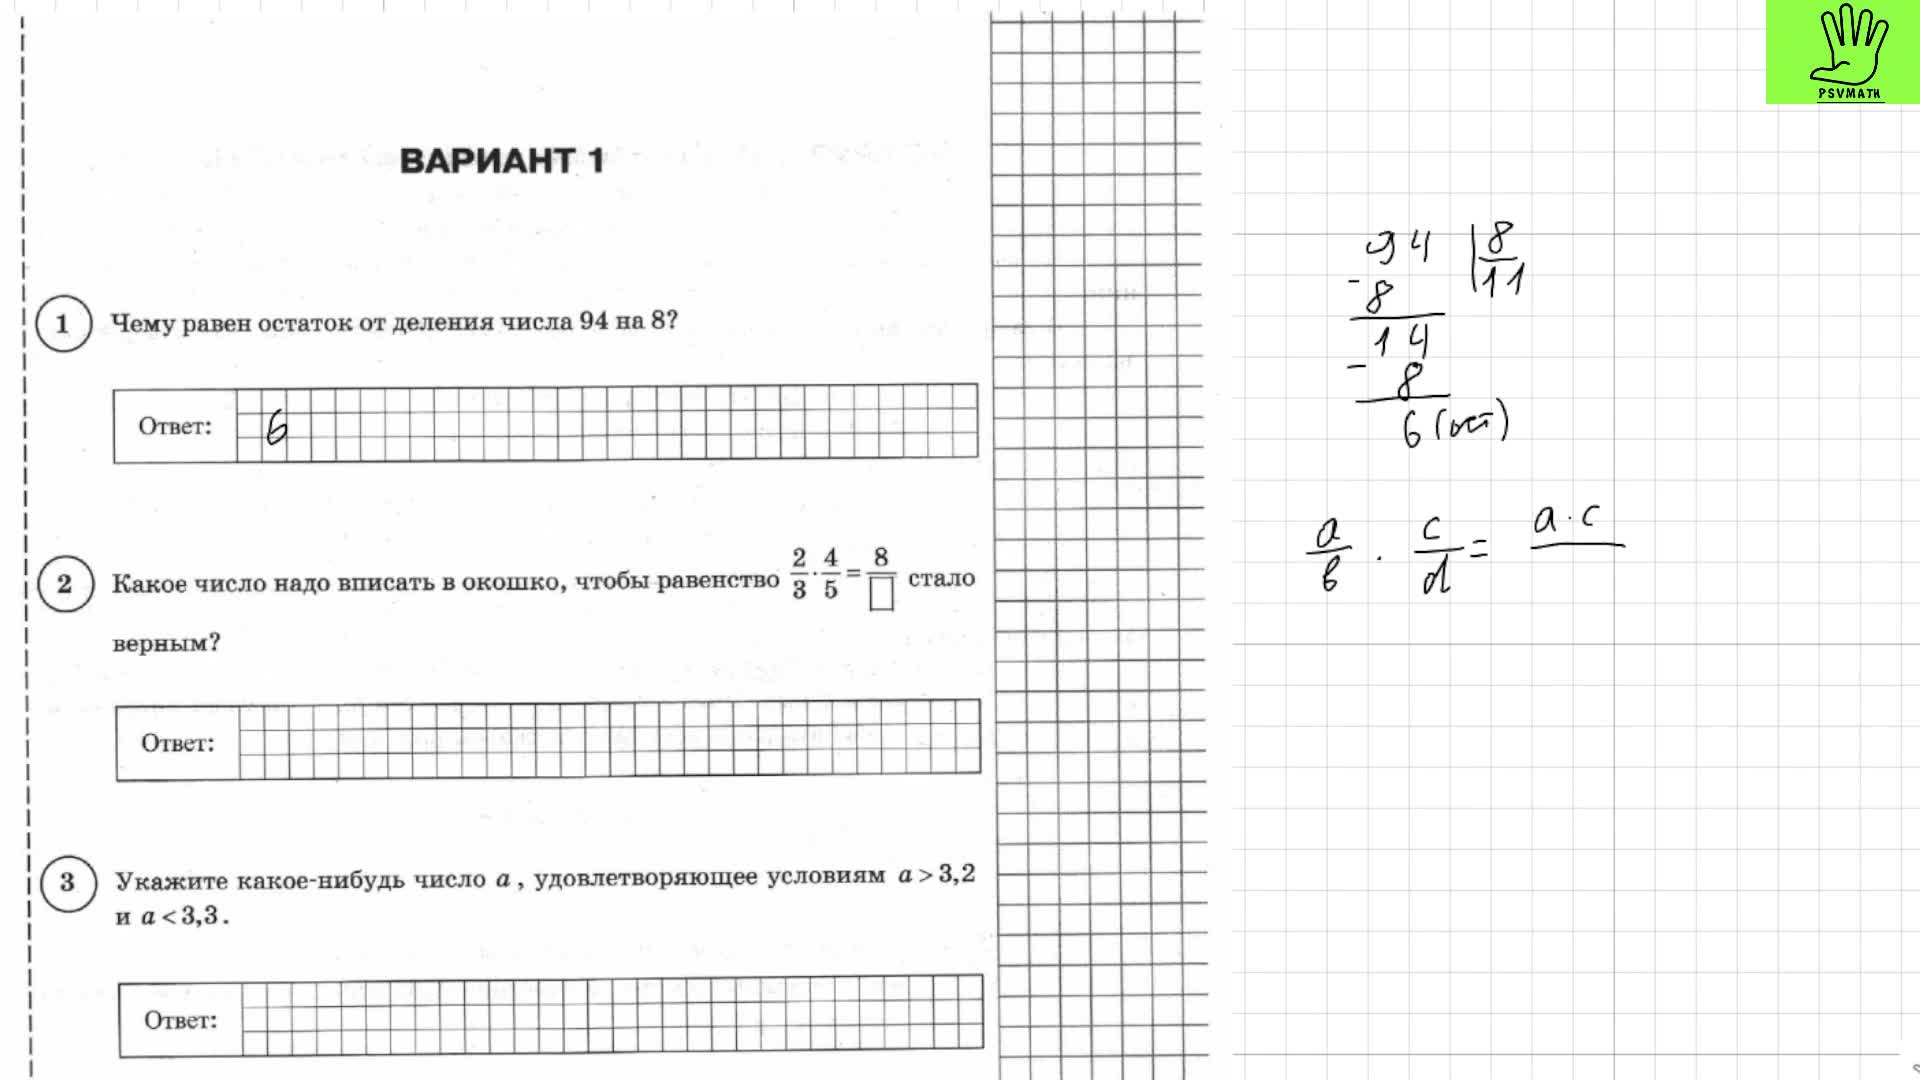 PSVMATH
ВАРИАНТ 1
1 Чему равен остаток от деления числа 94 на 8?
Ответ: 6
2 Какое число надо вписать в окошко, чтобы равенство 2/3 · 4/5 = 8/□ стало
верным?
Ответ:
3 Укажите какое-нибудь число a, удовлетворяющее условиям a > 3,2
и a < 3,3.
Ответ:
94 | 8
- 8 11
14
- 8
6 (ост)
a/b · c/d = a · c